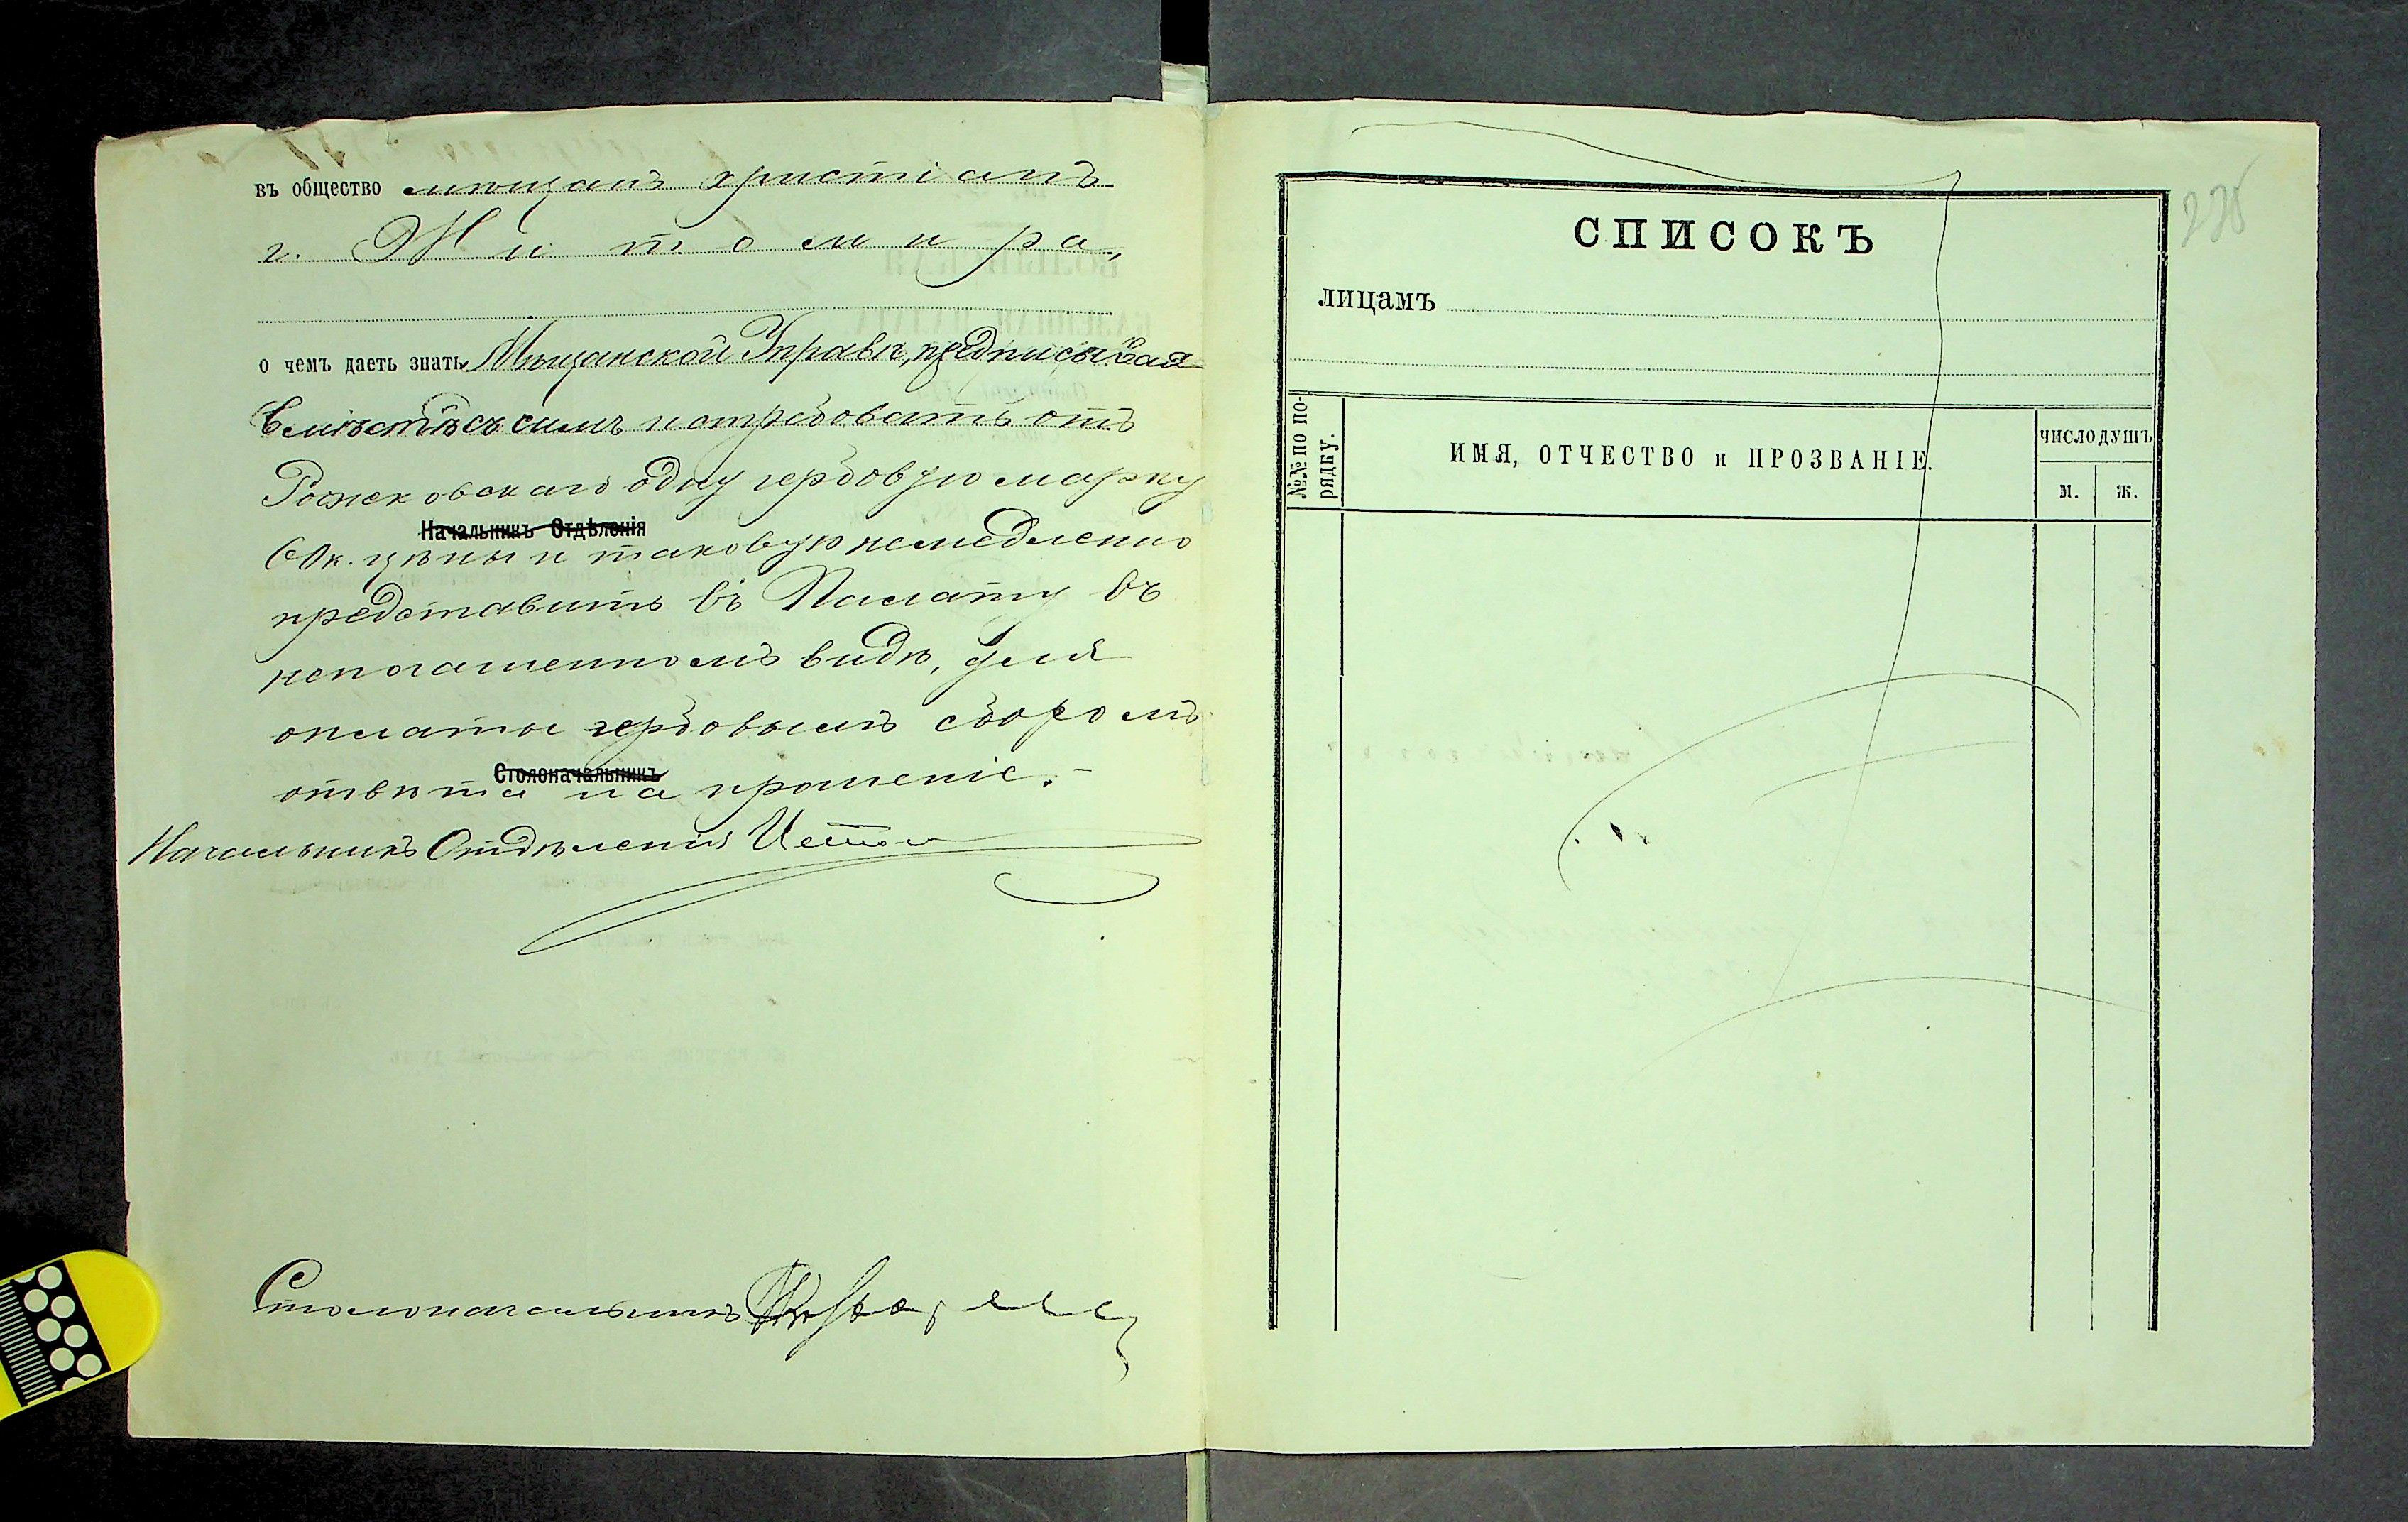 въ общество мѣщанъ христіанъ
г. Житомира,
о чемъ даетъ знать Мѣщанской Управѣ, предписывая
вмѣстѣ съ симъ истребовать отъ
Рожковскаго одну гербовую марку
Начальникъ Отдѣленія
60 к. цѣны и таковую немедленно
представить въ Палату въ
непогашенномъ видѣ, для
оплаты гербовымъ сборомъ
Столоначальникъ
отвѣта на прошеніе.-
Начальникъ Отдѣленія
Столоначальникъ
СПИСОКЪ
лицамъ
№№ по по-
рядку.
ИМЯ, ОТЧЕСТВО и ПРОЗВАНІЕ.
ЧИСЛО ДУШЪ
м. ж.